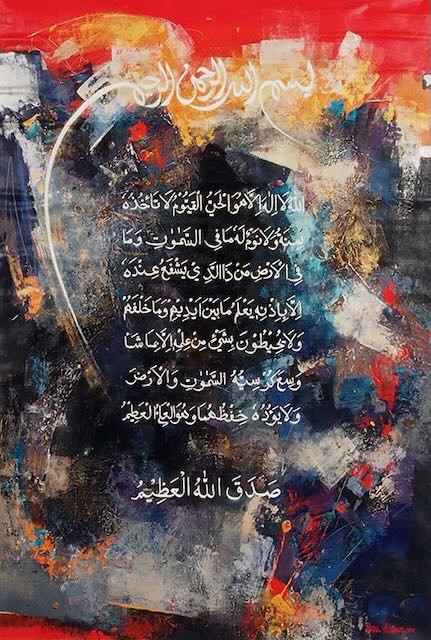 بسم الله الرحمن الرحيم
اَللهُ لَا اِلٰهَ اِلَّا هُوَ الْحَيُّ الْقَيُّومُ لَا تَاْخُذُهٗ
سِنَةٌ وَلَا نَوْمٌ لَهٗ مَا فِي السَّمٰوٰتِ وَمَا
فِي الْاَرْضِ مَنْ ذَا الَّذِيْ يَشْفَعُ عِنْدَهٗ
اِلَّا بِاِذْنِهٖ يَعْلَمُ مَا بَيْنَ اَيْدِيْهِمْ وَمَا خَلْفَهُمْ
وَلَا يُحِيْطُوْنَ بِشَيْءٍ مِنْ عِلْمِهٖ اِلَّا بِمَا شَا
وَسِعَ كُرْسِيُّهُ السَّمٰوٰتِ وَالْاَرْضَ
وَلَا يَؤُدُهٗ حِفْظُهُمَا وَهُوَ الْعَلِيُّ الْعَظِيْمُ
صَدَقَ اللهُ الْعَظِيْمُ